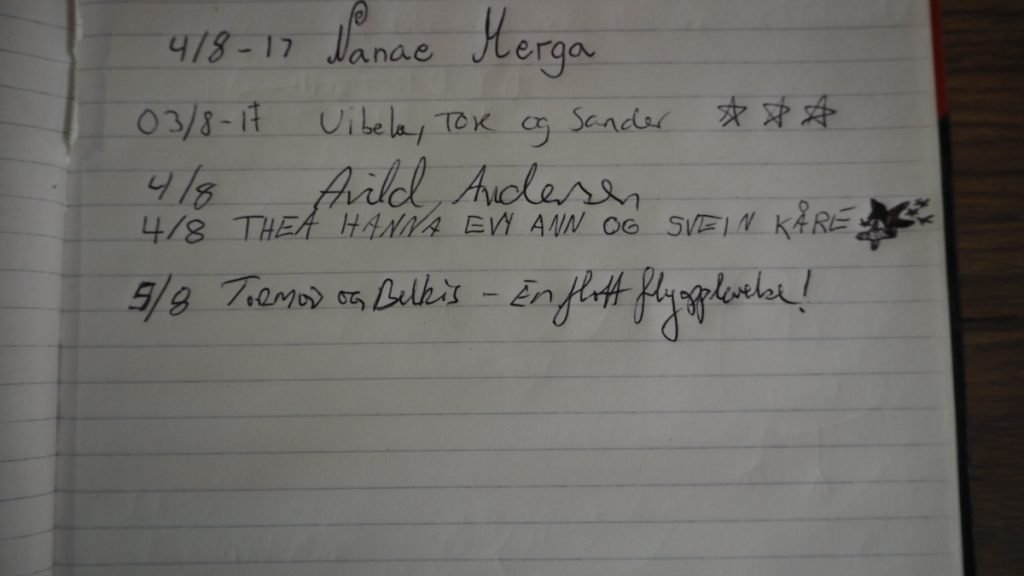 4/8-17 Nanae Merga
03/8-17 Vibeke, Tor og Sander
4/8 Arild Andersen
4/8 THEA HANNA EVY ANN OG SVEIN KÅRE
5/8 Tormod og Belkis - En flott flyopplevelse!